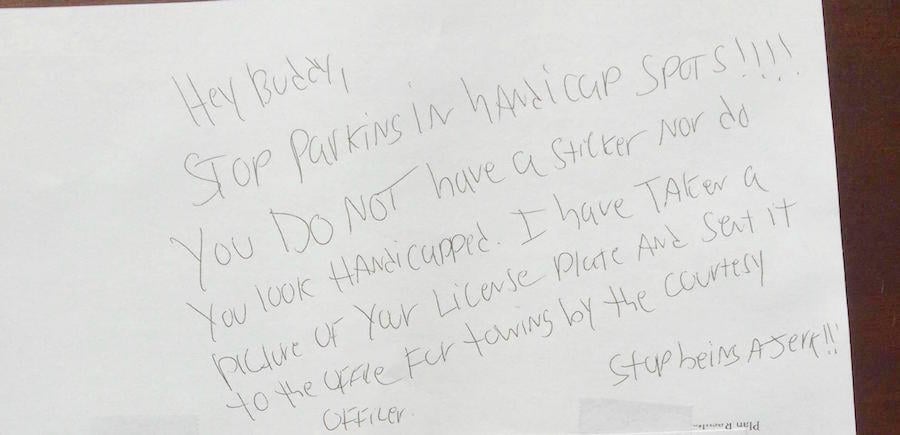 Hey Buddy,
STOP Parking in hAndicap SPOTS!!!!
You DO NOT have a sticker Nor do
You look HAndicapped. I have TAken a
picture of Your License plate And Sent it
to the office For towing by the courtesy
OFFicer.
Stop being A Jerk!!!
Plan